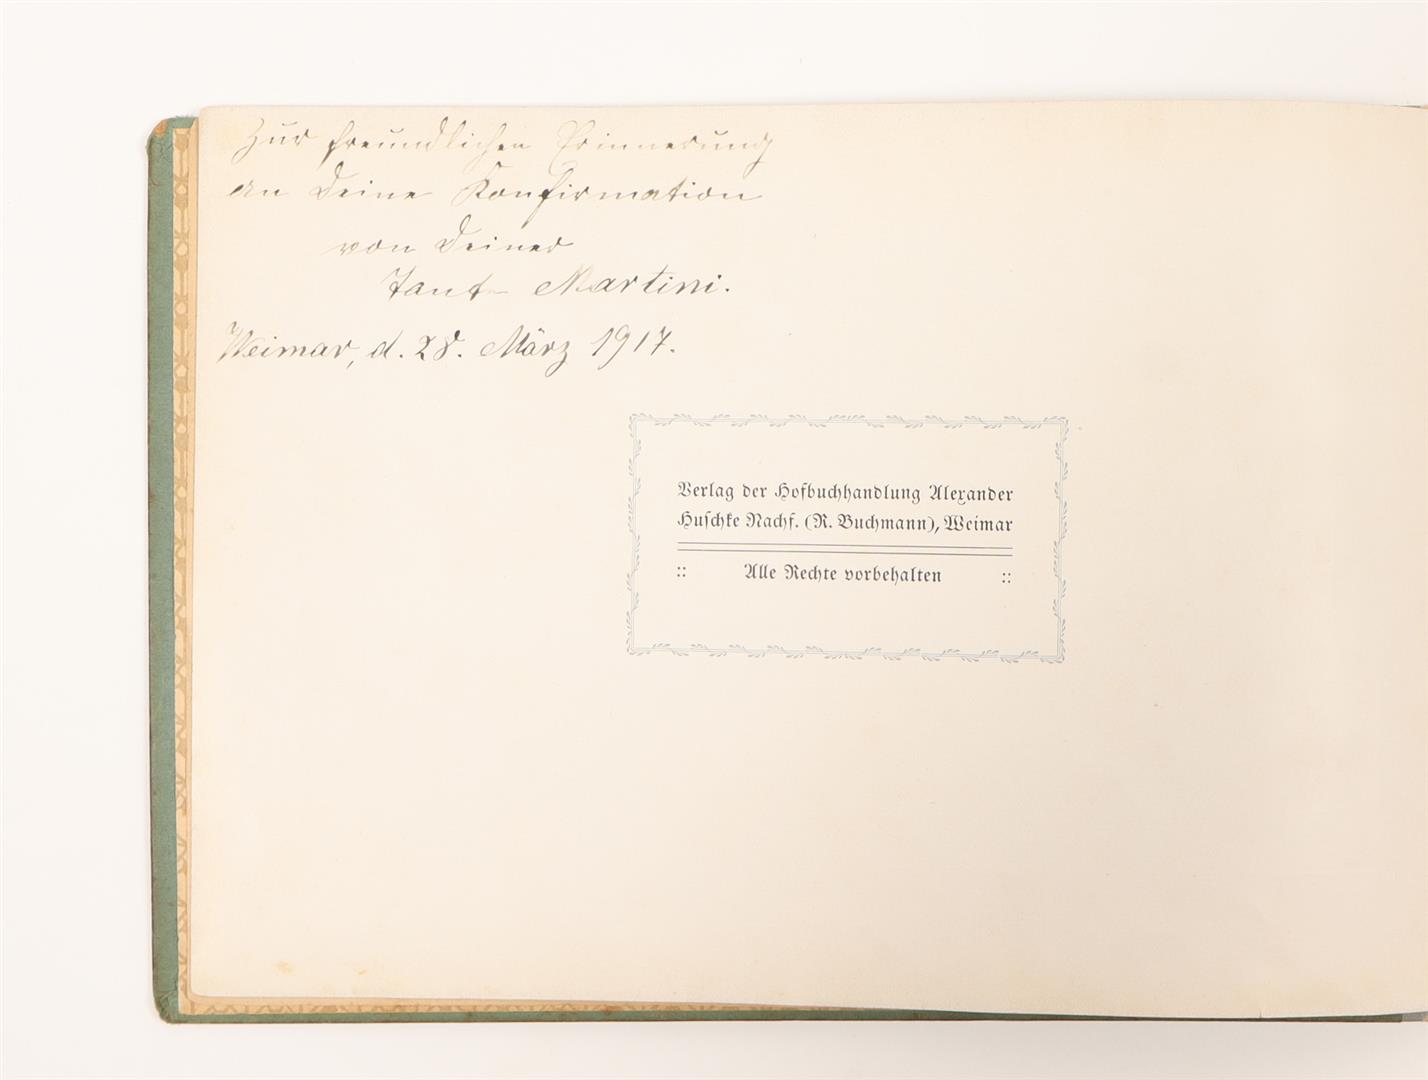 Zur freundlichen Erinnerung
an Deine Konfirmation
von Deiner
Tante Martini.
Weimar, d. 28. März 1917.
Verlag der Hofbuchhandlung Alexander
Huschke Nachf. (R. Buchmann), Weimar
:: Alle Rechte vorbehalten ::